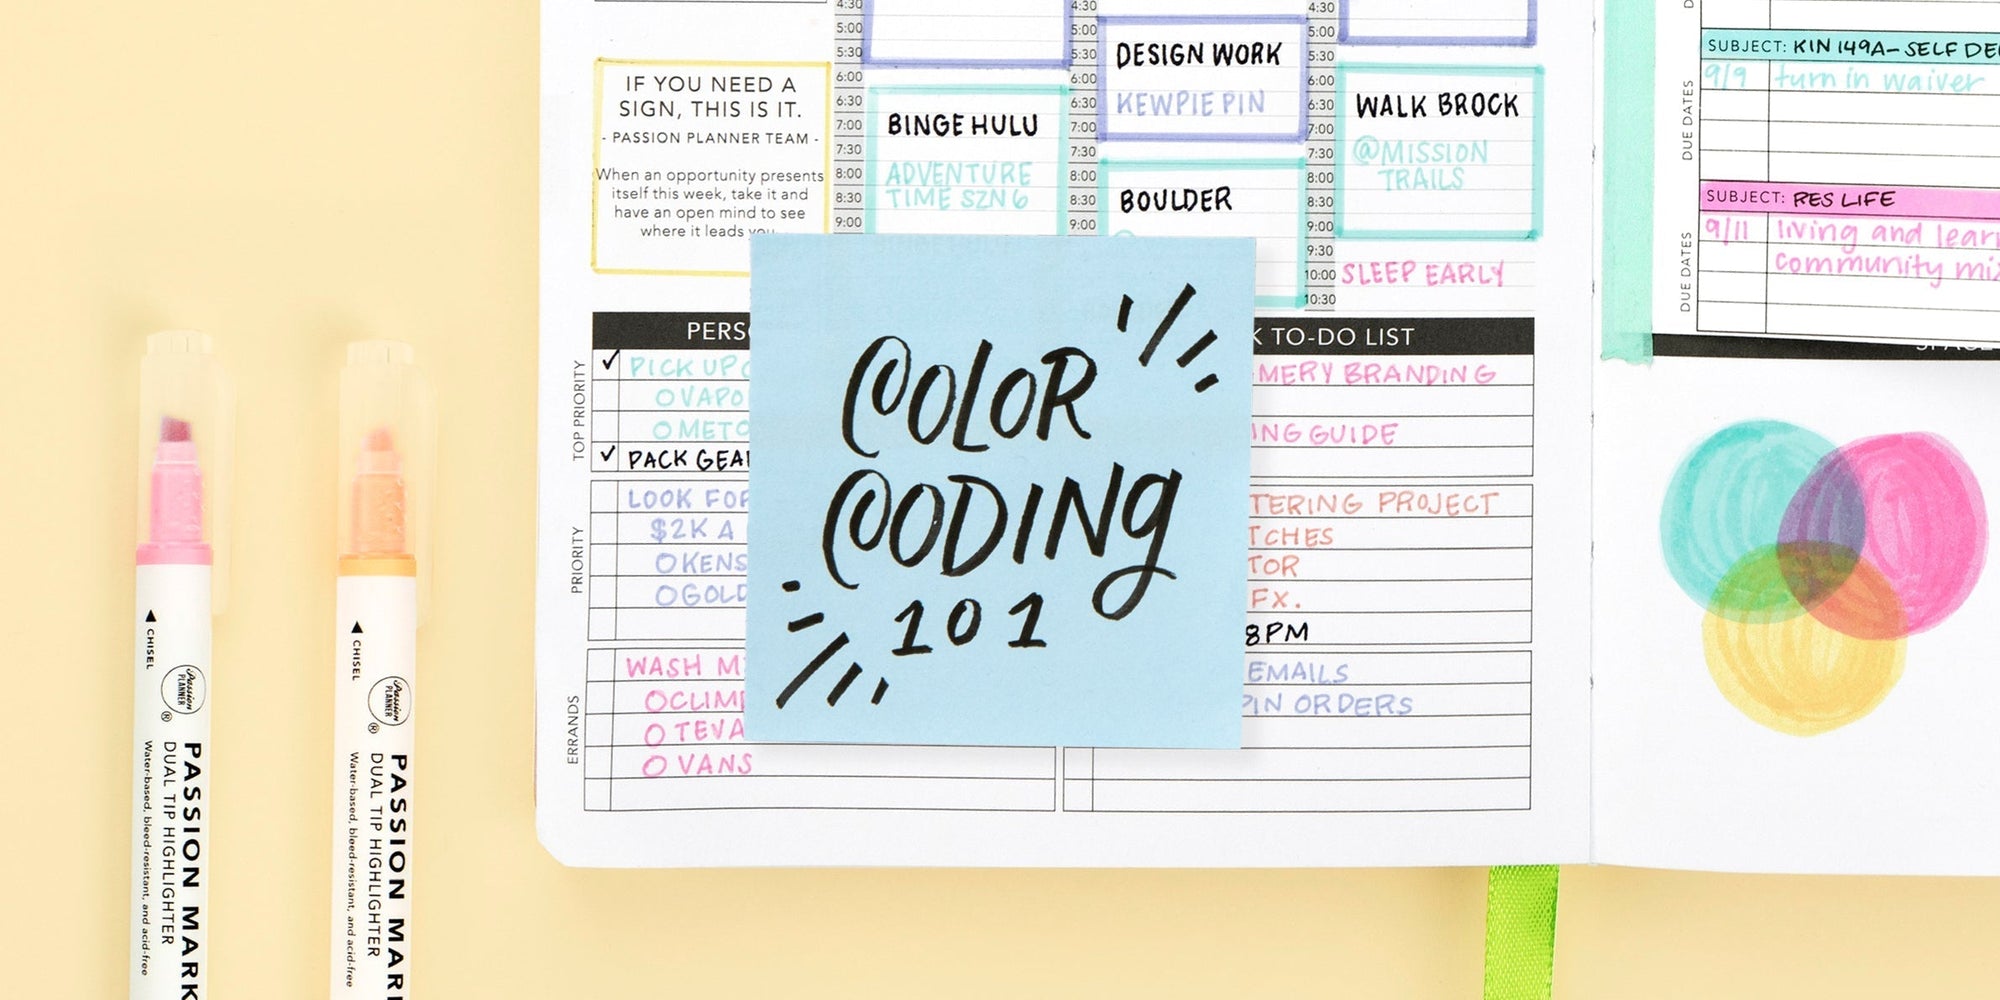 4:30
5:00
5:30
6:00
6:30
7:00
7:30
8:00
8:30
9:00
IF YOU NEED A
SIGN, THIS IS IT.
- PASSION PLANNER TEAM -
When an opportunity presents
itself this week, take it and
have an open mind to see
where it leads you.
BINGE HULU
ADVENTURE
TIME SZN 6
4:30
5:00
5:30
6:00
6:30
7:00
7:30
8:00
8:30
9:00
DESIGN WORK
KEWPIE PIN
BOULDER
4:30
5:00
5:30
6:00
6:30
7:00
7:30
8:00
8:30
9:00
9:30
10:00
10:30
WALK BROCK
@MISSION
TRAILS
SLEEP EARLY
TOP PRIORITY
PICK UP
PACK GEAR
PRIORITY
LOOK FOR
$2K A
ERRANDS
WASH
O VANS
COLOR
CODING
101
TO-DO LIST
BRANDING
GUIDE
PROJECT
FX.
8PM
EMAILS
PIN ORDERS
SUBJECT: KIN 149A- SELF
9/9 turn in waiver
DUE DATES
SUBJECT: RES LIFE
9/11 living and
community
DUE DATES
CHISEL
Passion
PLANNER
®
PASSION MARK
DUAL TIP HIGHLIGHTER
Water-based, bleed-resistant, and acid-free
CHISEL
Passion
PLANNER
®
PASSION MARK
DUAL TIP HIGHLIGHTER
Water-based, bleed-resistant, and acid-free